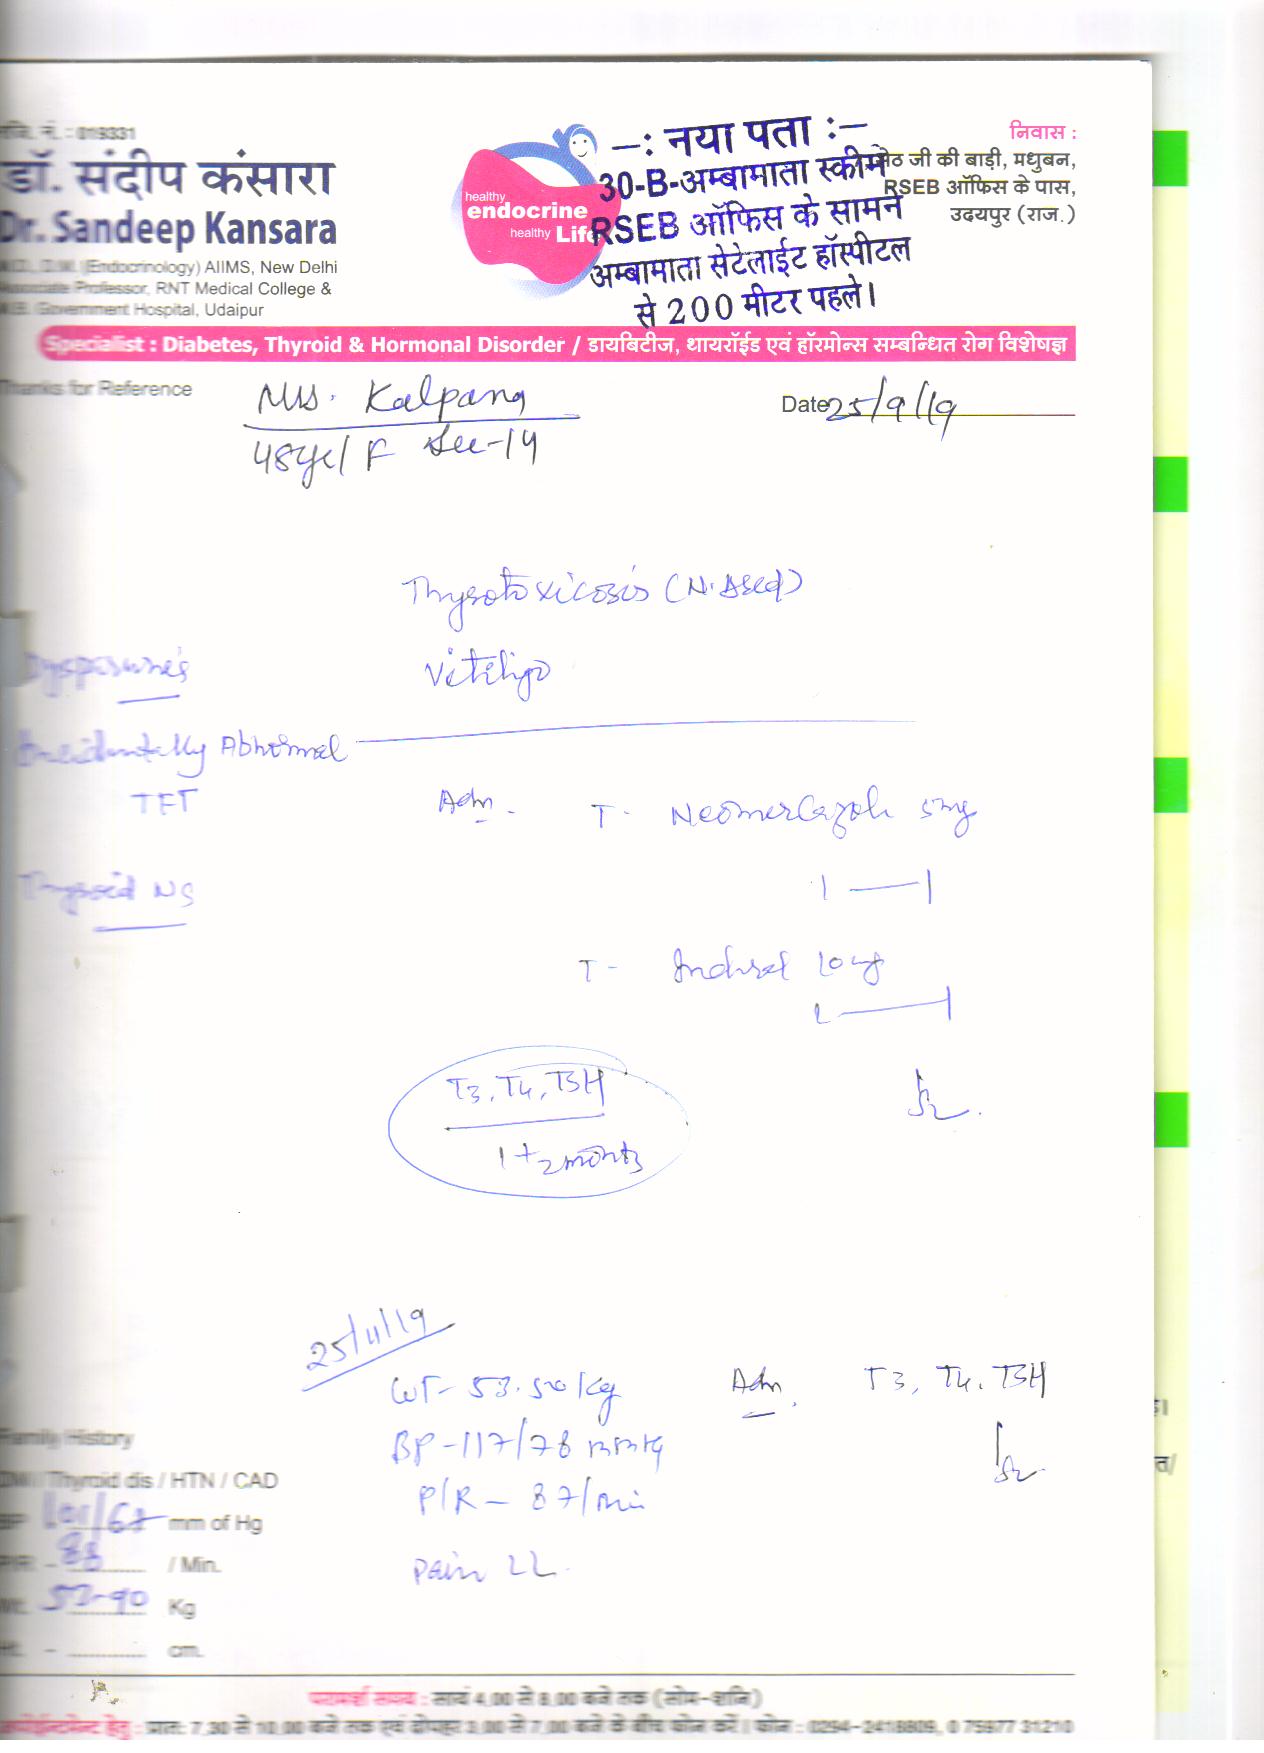 रजि. नं. : 019331
डॉ. संदीप कंसारा
Dr. Sandeep Kansara
M.D., D.M. (Endocrinology) AIIMS, New Delhi
Associate Professor, RNT Medical College &
M.B. Government Hospital, Udaipur
healthy
endocrine
healthy Life
—: नया पता :—
30-B-अम्बामाता स्कीम
RSEB ऑफिस के सामने
अम्बामाता सेटेलाईट हॉस्पीटल
से 200 मीटर पहले।
निवास :
जी की बाड़ी, मधुबन,
RSEB ऑफिस के पास,
उदयपुर (राज.)
Specialist : Diabetes, Thyroid & Hormonal Disorder / डायबिटीज, थायरॉईड एवं हॉरमोन्स सम्बन्धित रोग विशेषज्ञ
Thanks for Reference
Mrs. Kalpana
Date 25/9/19
48yr/F
Thyrotoxicosis
Vitiligo
Incidentally Abnormal
TFT
Adv.
T- Neomercazole 5mg
1 — 1
Thyroid NS
T- Inderal 10mg
1 — 1
T3, T4, TSH
1 + 2 months
25/11/19
WT- 53.50 Kg
Adv.
T3, T4, TSH
BP -117/78 mmHg
P/R - 87/min
Pain LL
Family History
DM / Thyroid dis / HTN / CAD
BP 101/67 mm of Hg
P/R - 88 / Min.
Wt. 53.90 Kg
Ht. - cm.
परामर्श समय : सायं 4.00 से 8.00 बजे तक (सोम-शनि)
अपोईन्टमेन्ट हेतु : प्रात: 7.30 से 10.00 बजे तक एवं दोपहर 3.00 से 7.00 बजे के बीच फोन करें। फोन : 0294-2418809, 0 75977 31210